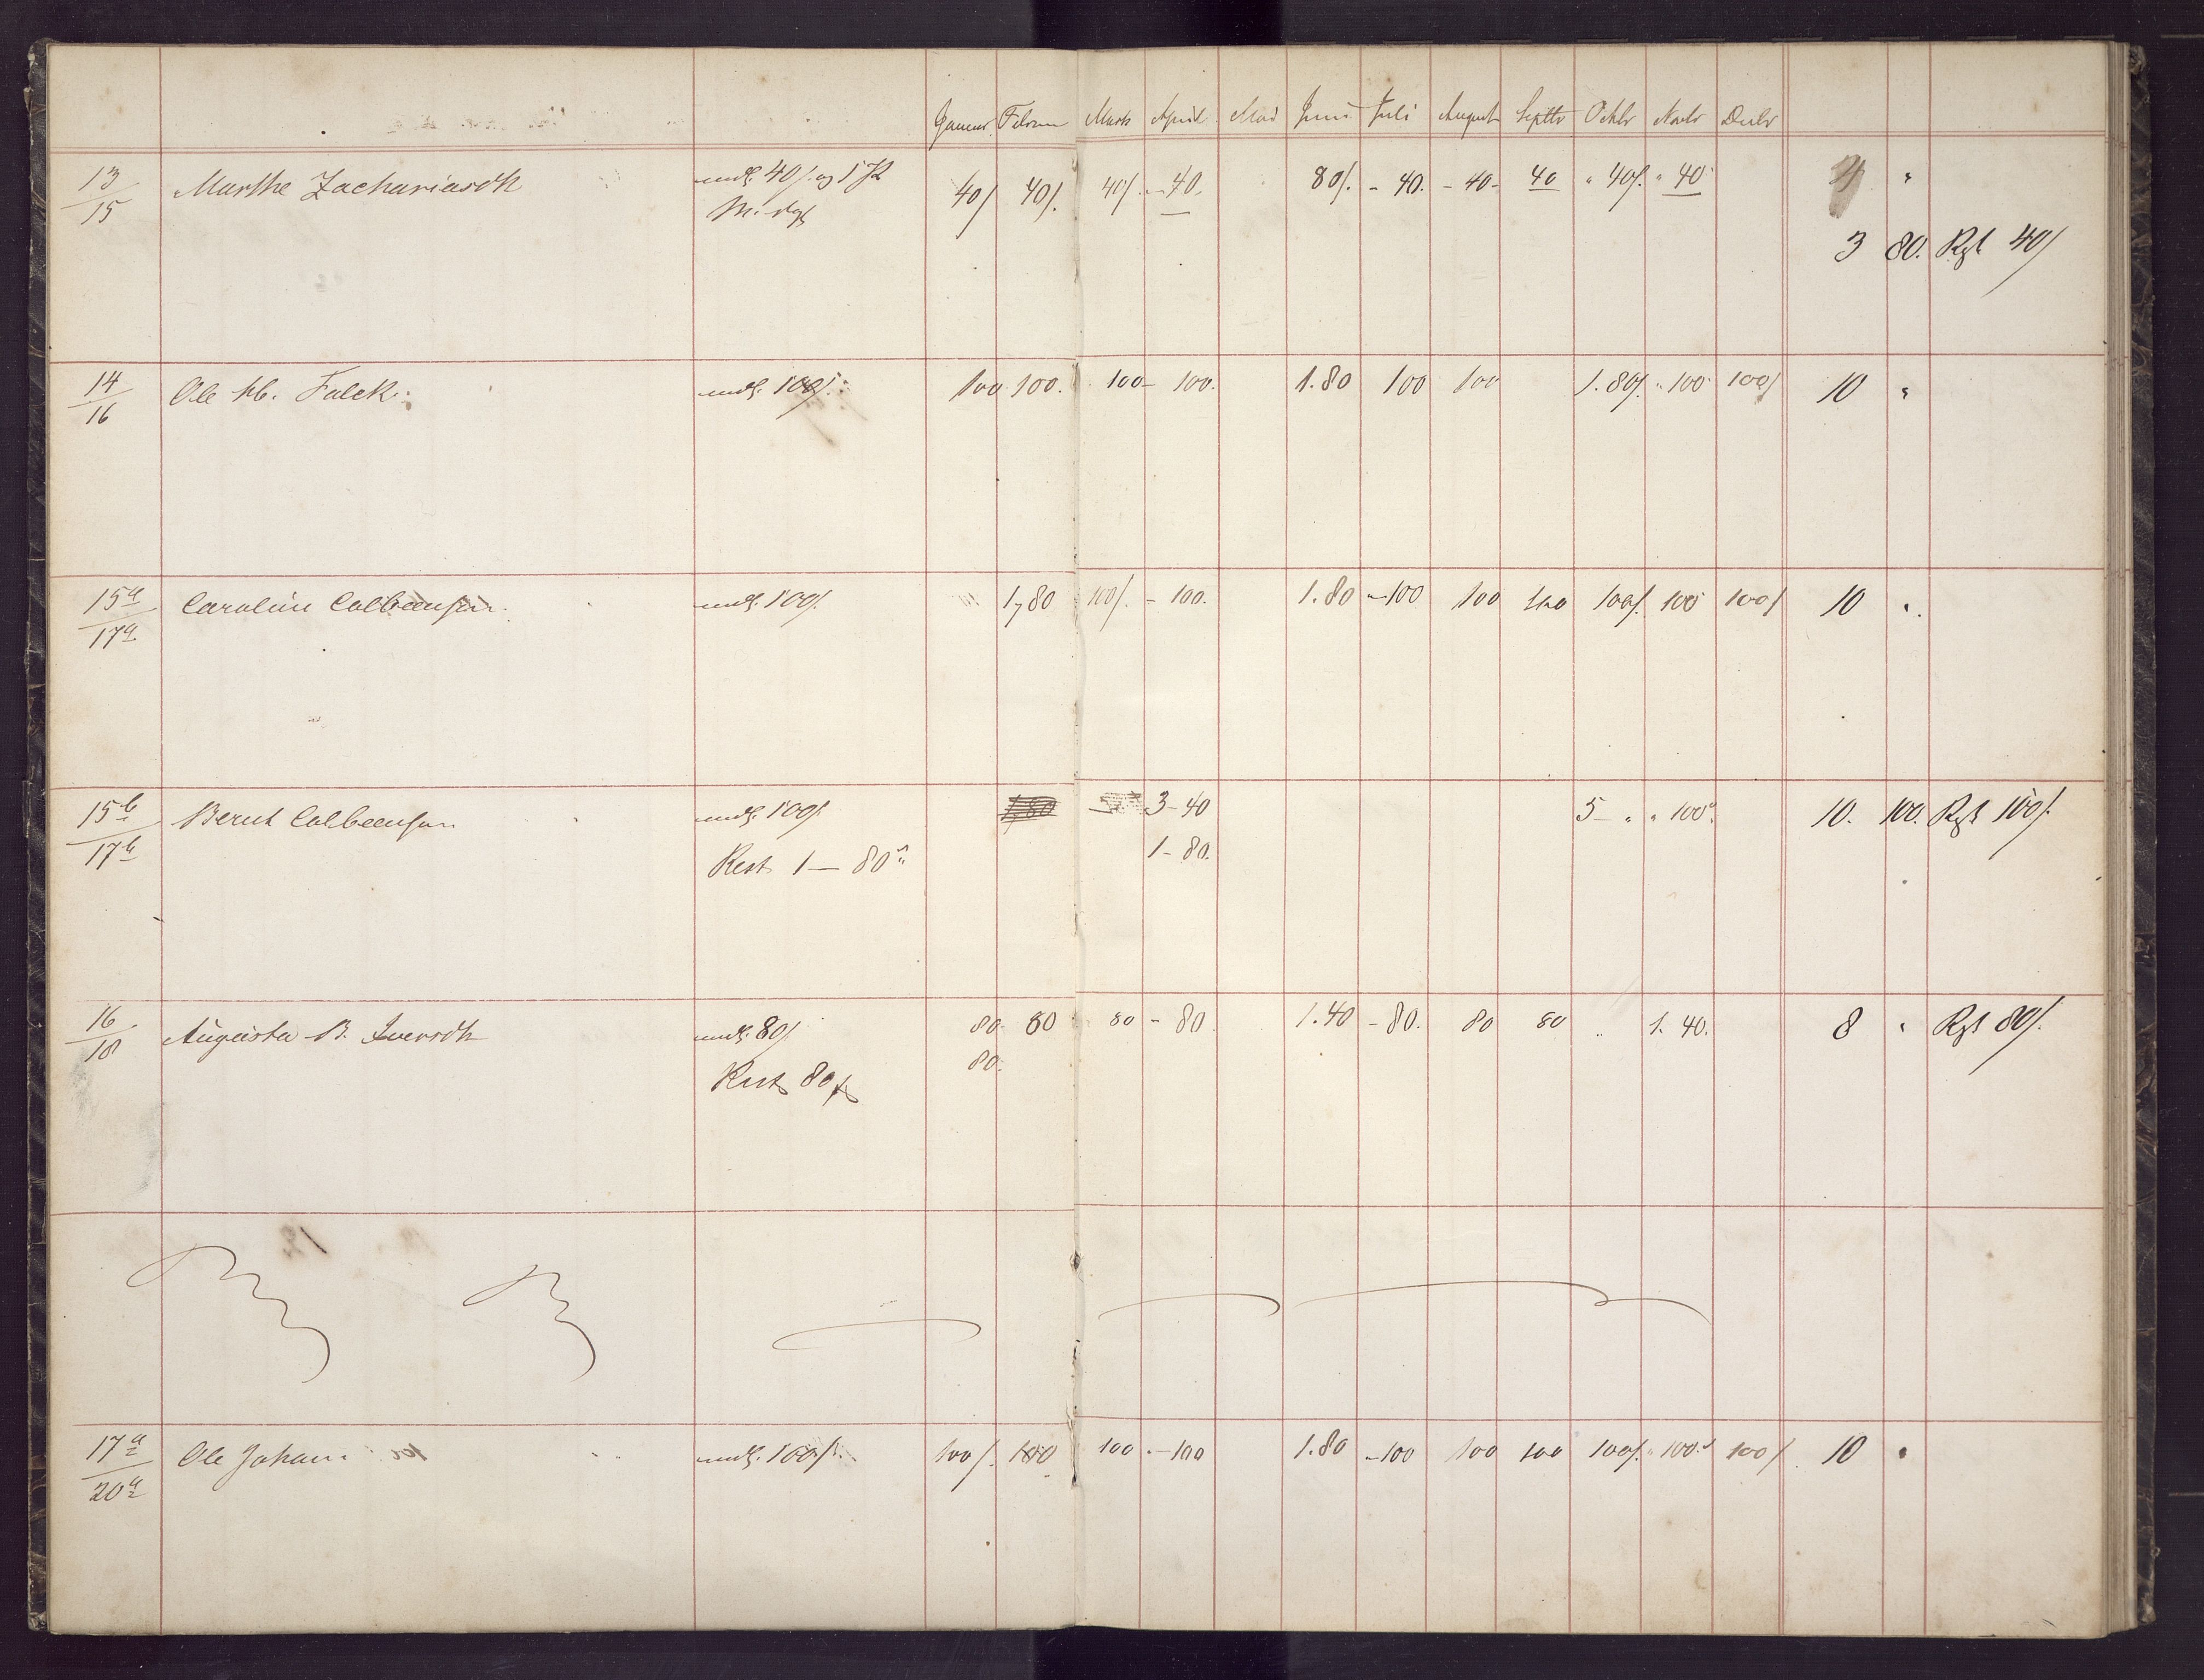 Januar Februar Marts April Mai Juni Juli August Septbr Octbr Novbr Decbr
13/15 Marthe Zachariasdtr mdl. 40/ og 1 40/ 40/. 40/. - 40. 80/. - 40. - 40 - 40 " 40/. " 40 "
3 80. Rest 40/
14/16 Ole Falck. mdl. 100/. 100 100. 100 - 100. 1.80 100 100 1.80/. " 100 100/ 10 "
15a/17a Caroline Colbeensen. mdl. 100/. 1,80 100/. - 100. 1.80 - 100 100 100 100/. 100 100/ 10 "
15b/17b Bernt Colbeensen mdl. 100/. 1,80 3 - 40 5 - " " 100 10. 100. Rest 100/.
Rest 1 — 80 1 - 80.
16/18 Augusta B. Iversdtr mdl. 80/. 80 80 80 - 80 1.40 - 80. 80 80 " 1. 40. 8 " Rest 80/.
Rest 80 80.
17a/20a Ole Johan. mdl. 100/. 100/. 100 100 - 100 1.80 - 100 100 100 100/. " 100 100/. 10 "